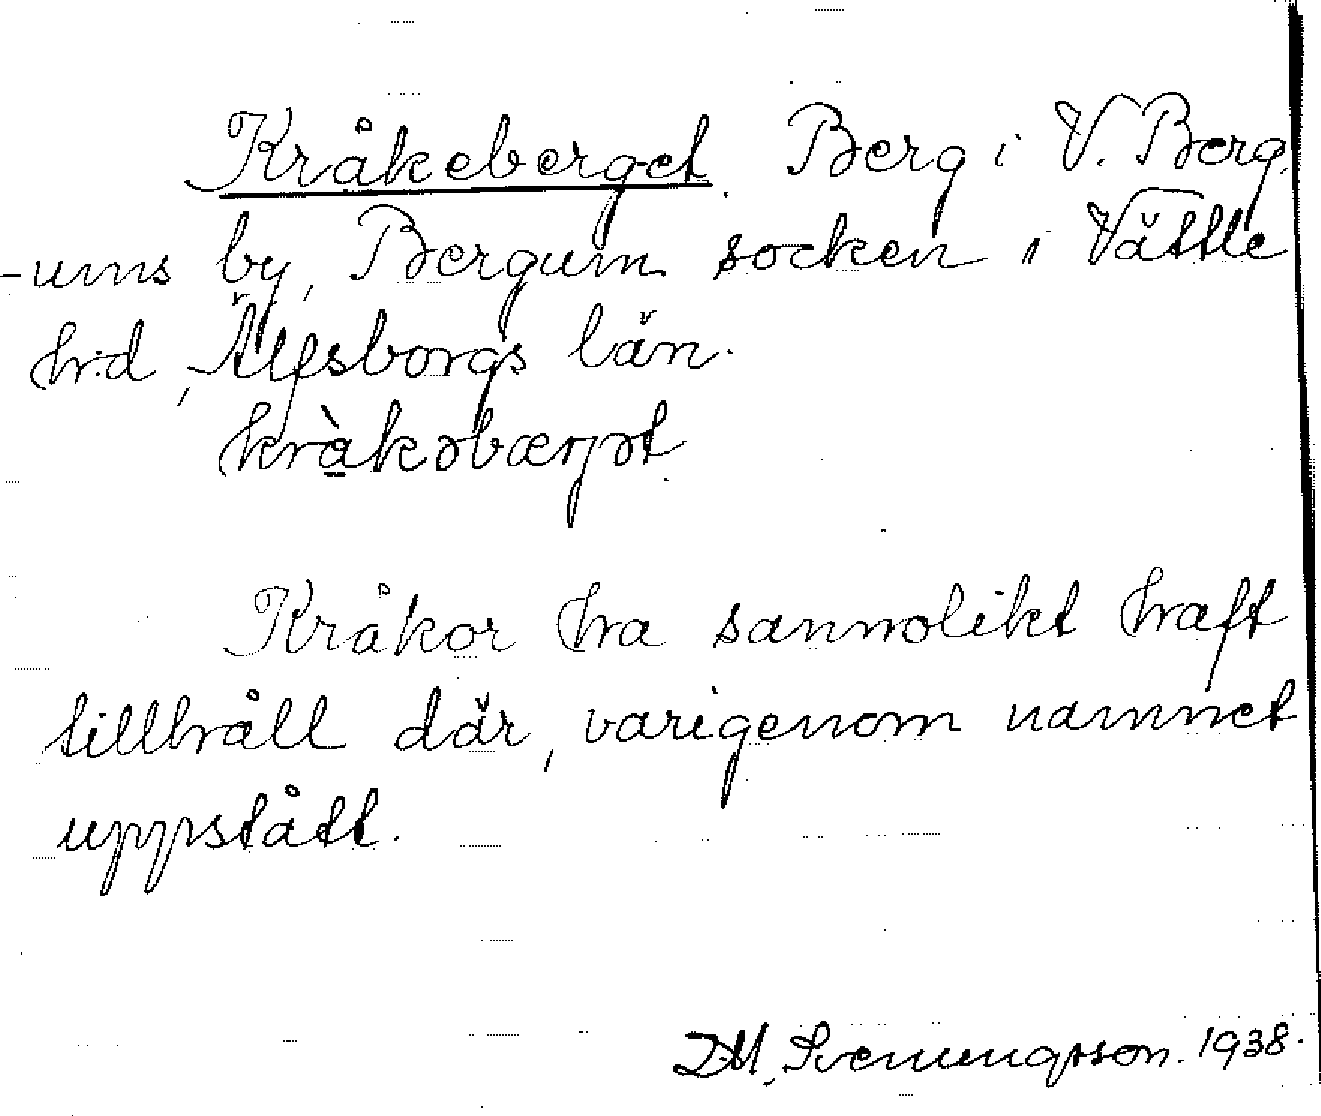 Kråkeberget. Berg i V. Berg
-ums by, Bergum socken i Vättle
hrd, Älfsborgs län.
kràkəbærjət.
Kråkor ha sannolikt haft
tillhåll där, varigenom namnet
uppstått.
D.M. Svenungsson. 1938.